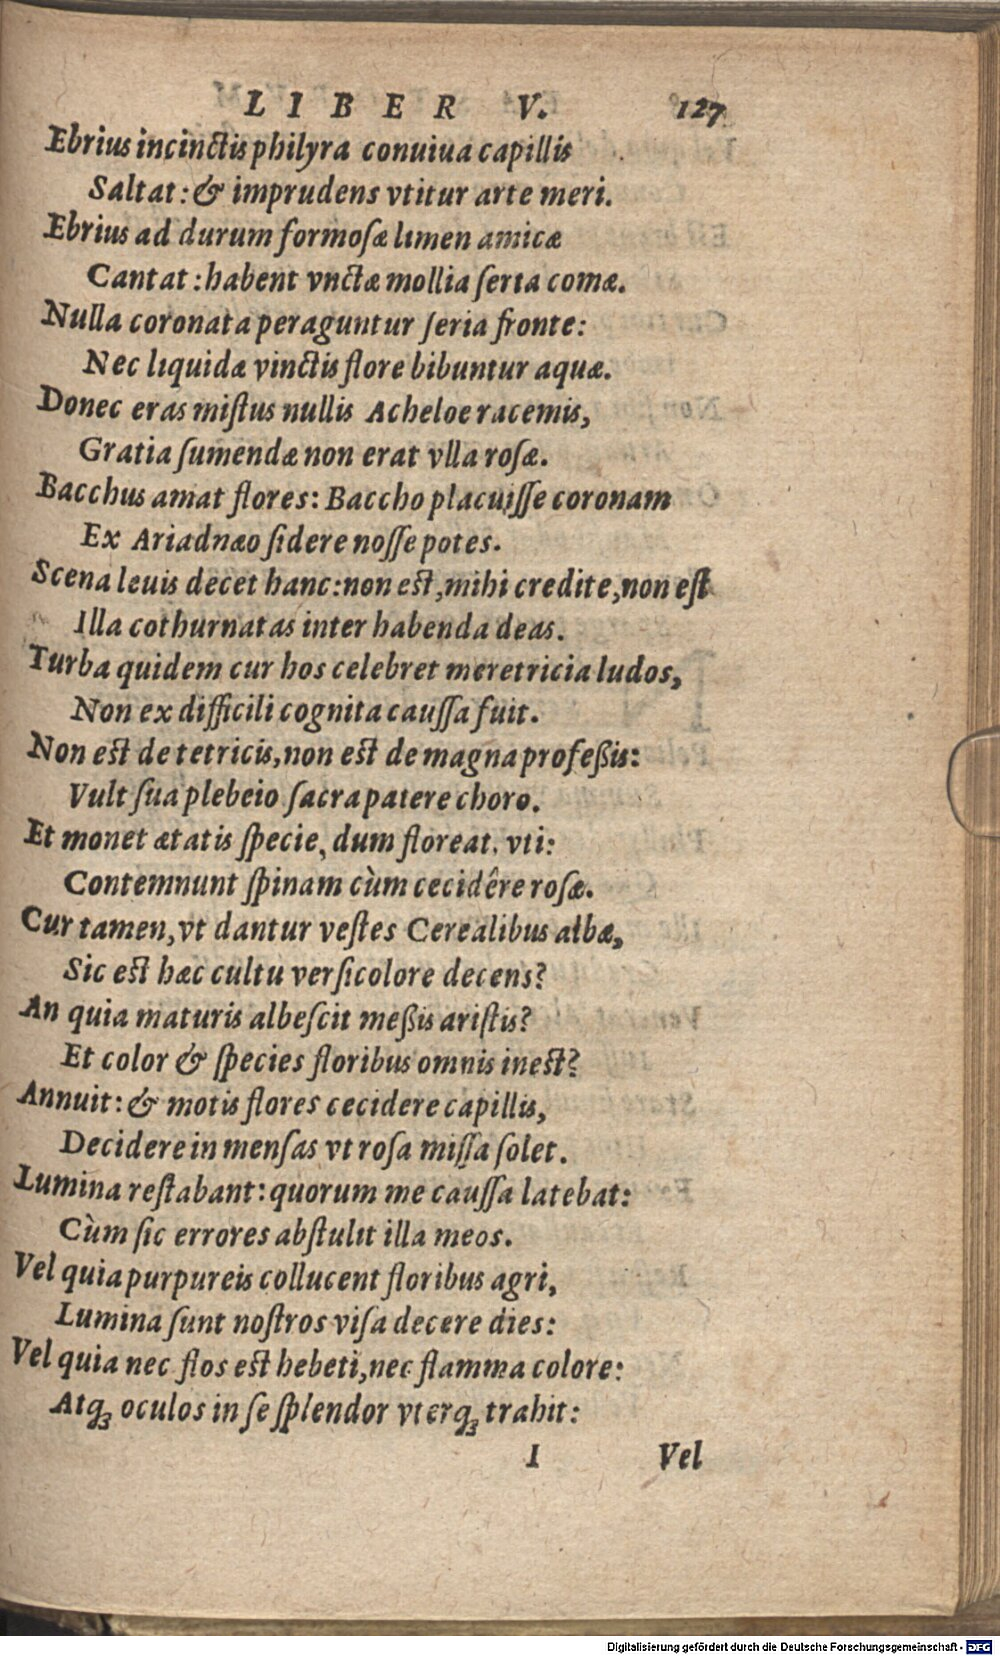 LIBER V. 127
Ebrius incinctis philyra conuiua capillis
Saltat: & imprudens vtitur arte meri.
Ebrius ad durum formoſæ limen amicæ
Cantat: habent vnctæ mollia ſerta comæ.
Nulla coronata peraguntur ſeria fronte:
Nec liquidæ vinctis flore bibuntur aquæ.
Donec eras miſtus nullis Acheloe racemis,
Gratia ſumendæ non erat vlla roſæ.
Bacchus amat flores: Baccho placuiſſe coronam
Ex Ariadnæo ſidere noſſe potes.
Scena leuis decet hanc: non est, mihi credite, non eſt
Illa cothurnatas inter habenda deas.
Turba quidem cur hos celebret meretricia ludos,
Non ex difficili cognita cauſſa fuit.
Non est de tetricis, non est de magna profeßis:
Vult ſua plebeio ſacra patere choro.
Et monet ætatis ſpecie, dum floreat, vti:
Contemnunt ſpinam cùm cecidêre roſæ.
Cur tamen, vt dantur veſtes Cerealibus albæ,
Sic est hæc cultu verſicolore decens?
An quia maturis albeſcit meßis ariſtis?
Et color & ſpecies floribus omnis inest?
Annuit: & motis flores cecidere capillis,
Decidere in menſas vt roſa miſſa ſolet.
Lumina reſtabant: quorum me cauſſa latebat:
Cùm ſic errores abſtulit illa meos.
Vel quia purpureis collucent floribus agri,
Lumina ſunt noſtros viſa decere dies:
Vel quia nec flos est hebeti, nec flamma colore:
Atqꝫ oculos in ſe ſplendor vterqꝫ trahit:
I Vel
Digitalisierung gefördert durch die Deutsche Forschungsgemeinschaft - DFG